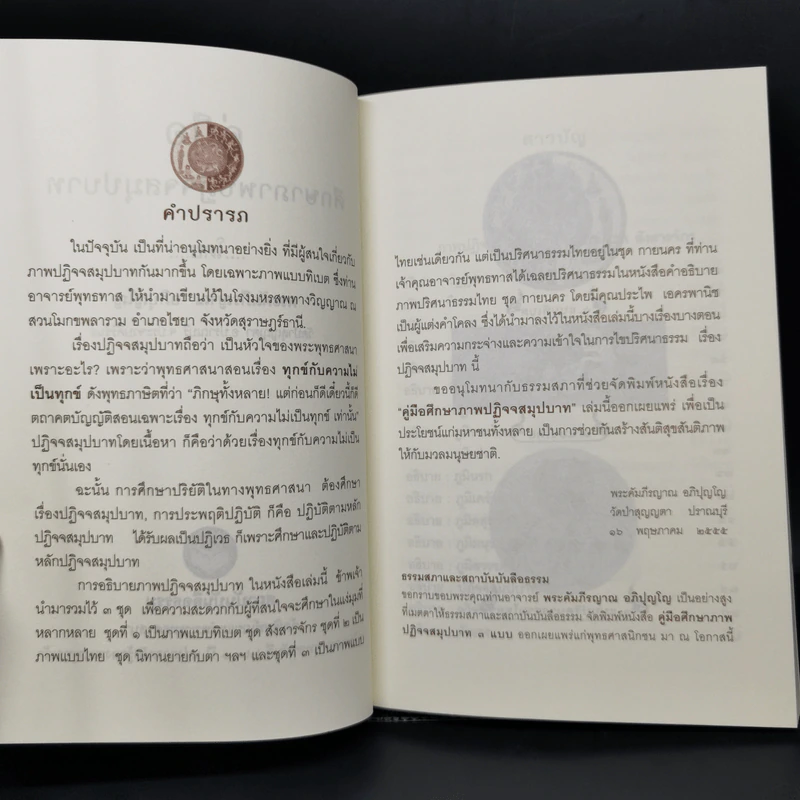 คำปรารภ
ในปัจจุบัน เป็นที่น่าอนุโมทนาอย่างยิ่ง ที่มีผู้สนใจเกี่ยวกับ
ภาพปฏิจจสมุปบาทกันมากขึ้น โดยเฉพาะภาพแบบทิเบต ซึ่งท่าน
อาจารย์พุทธทาส ให้นำมาเขียนไว้ในโรงมหรสพทางวิญญาณ ณ
สวนโมกขพลาราม อำเภอไชยา จังหวัดสุราษฎร์ธานี.
เรื่องปฏิจจสมุปบาทถือว่า เป็นหัวใจของพระพุทธศาสนา
เพราะอะไร? เพราะว่าพุทธศาสนาสอนเรื่อง ทุกข์กับความไม่
เป็นทุกข์ ดังพุทธภาษิตที่ว่า "ภิกษุทั้งหลาย! แต่ก่อนก็ดีเดี๋ยวนี้ก็ดี
ตถาคตบัญญัติสอนเฉพาะเรื่อง ทุกข์กับความไม่เป็นทุกข์ เท่านั้น"
ปฏิจจสมุปบาทโดยเนื้อหา ก็คือว่าด้วยเรื่องทุกข์กับความไม่เป็น
ทุกข์นั่นเอง
ฉะนั้น การศึกษาปริยัติในทางพุทธศาสนา ต้องศึกษา
เรื่องปฏิจจสมุปบาท, การประพฤติปฏิบัติ ก็คือ ปฏิบัติตามหลัก
ปฏิจจสมุปบาท ได้รับผลเป็นปฏิเวธ ก็เพราะศึกษาและปฏิบัติตาม
หลักปฏิจจสมุปบาท
การอธิบายภาพปฏิจจสมุปบาท ในหนังสือเล่มนี้ ข้าพเจ้า
นำมารวมไว้ ๓ ชุด เพื่อความสะดวกกับผู้ที่สนใจจะศึกษาในแง่มุมที่
หลากหลาย ชุดที่ ๑ เป็นภาพแบบทิเบต ชุด สังสารจักร ชุดที่ ๒ เป็น
ภาพแบบไทย ชุด นิทานยายกับตา ฯลฯ และชุดที่ ๓ เป็นภาพแบบ
ไทยเช่นเดียวกัน แต่เป็นปริศนาธรรมไทยอยู่ในชุด กายนคร ที่ท่าน
เจ้าคุณอาจารย์พุทธทาสได้เฉลยปริศนาธรรมในหนังสือคำอธิบาย
ภาพปริศนาธรรมไทย ชุด กายนคร โดยมีคุณประไพ เอครพานิช
เป็นผู้แต่งคำโคลง ซึ่งได้นำมาลงไว้ในหนังสือเล่มนี้บางเรื่องบางตอน
เพื่อเสริมความกระจ่างและความเข้าใจในการไขปริศนาธรรม เรื่อง
ปฏิจจสมุปบาท นี้
ขออนุโมทนากับธรรมสภาที่ช่วยจัดพิมพ์หนังสือเรื่อง
"คู่มือศึกษาภาพปฏิจจสมุปบาท" เล่มนี้ออกเผยแพร่ เพื่อเป็น
ประโยชน์แก่มหาชนทั้งหลาย เป็นการช่วยกันสร้างสันติสุขสันติภาพ
ให้กับมวลมนุษยชาติ.
พระคัมภีรญาณ อภิปุญโญ
วัดป่าสุญญตา ปราณบุรี
๑๖ พฤษภาคม ๒๕๕๕
ธรรมสภาและสถาบันบันลือธรรม
ขอกราบขอบพระคุณท่านอาจารย์ พระคัมภีรญาณ อภิปุญโญ เป็นอย่างสูง
ที่เมตตาให้ธรรมสภาและสถาบันบันลือธรรม จัดพิมพ์หนังสือ คู่มือศึกษาภาพ
ปฏิจจสมุปบาท ๓ แบบ ออกเผยแพร่แก่พุทธศาสนิกชน มา ณ โอกาสนี้